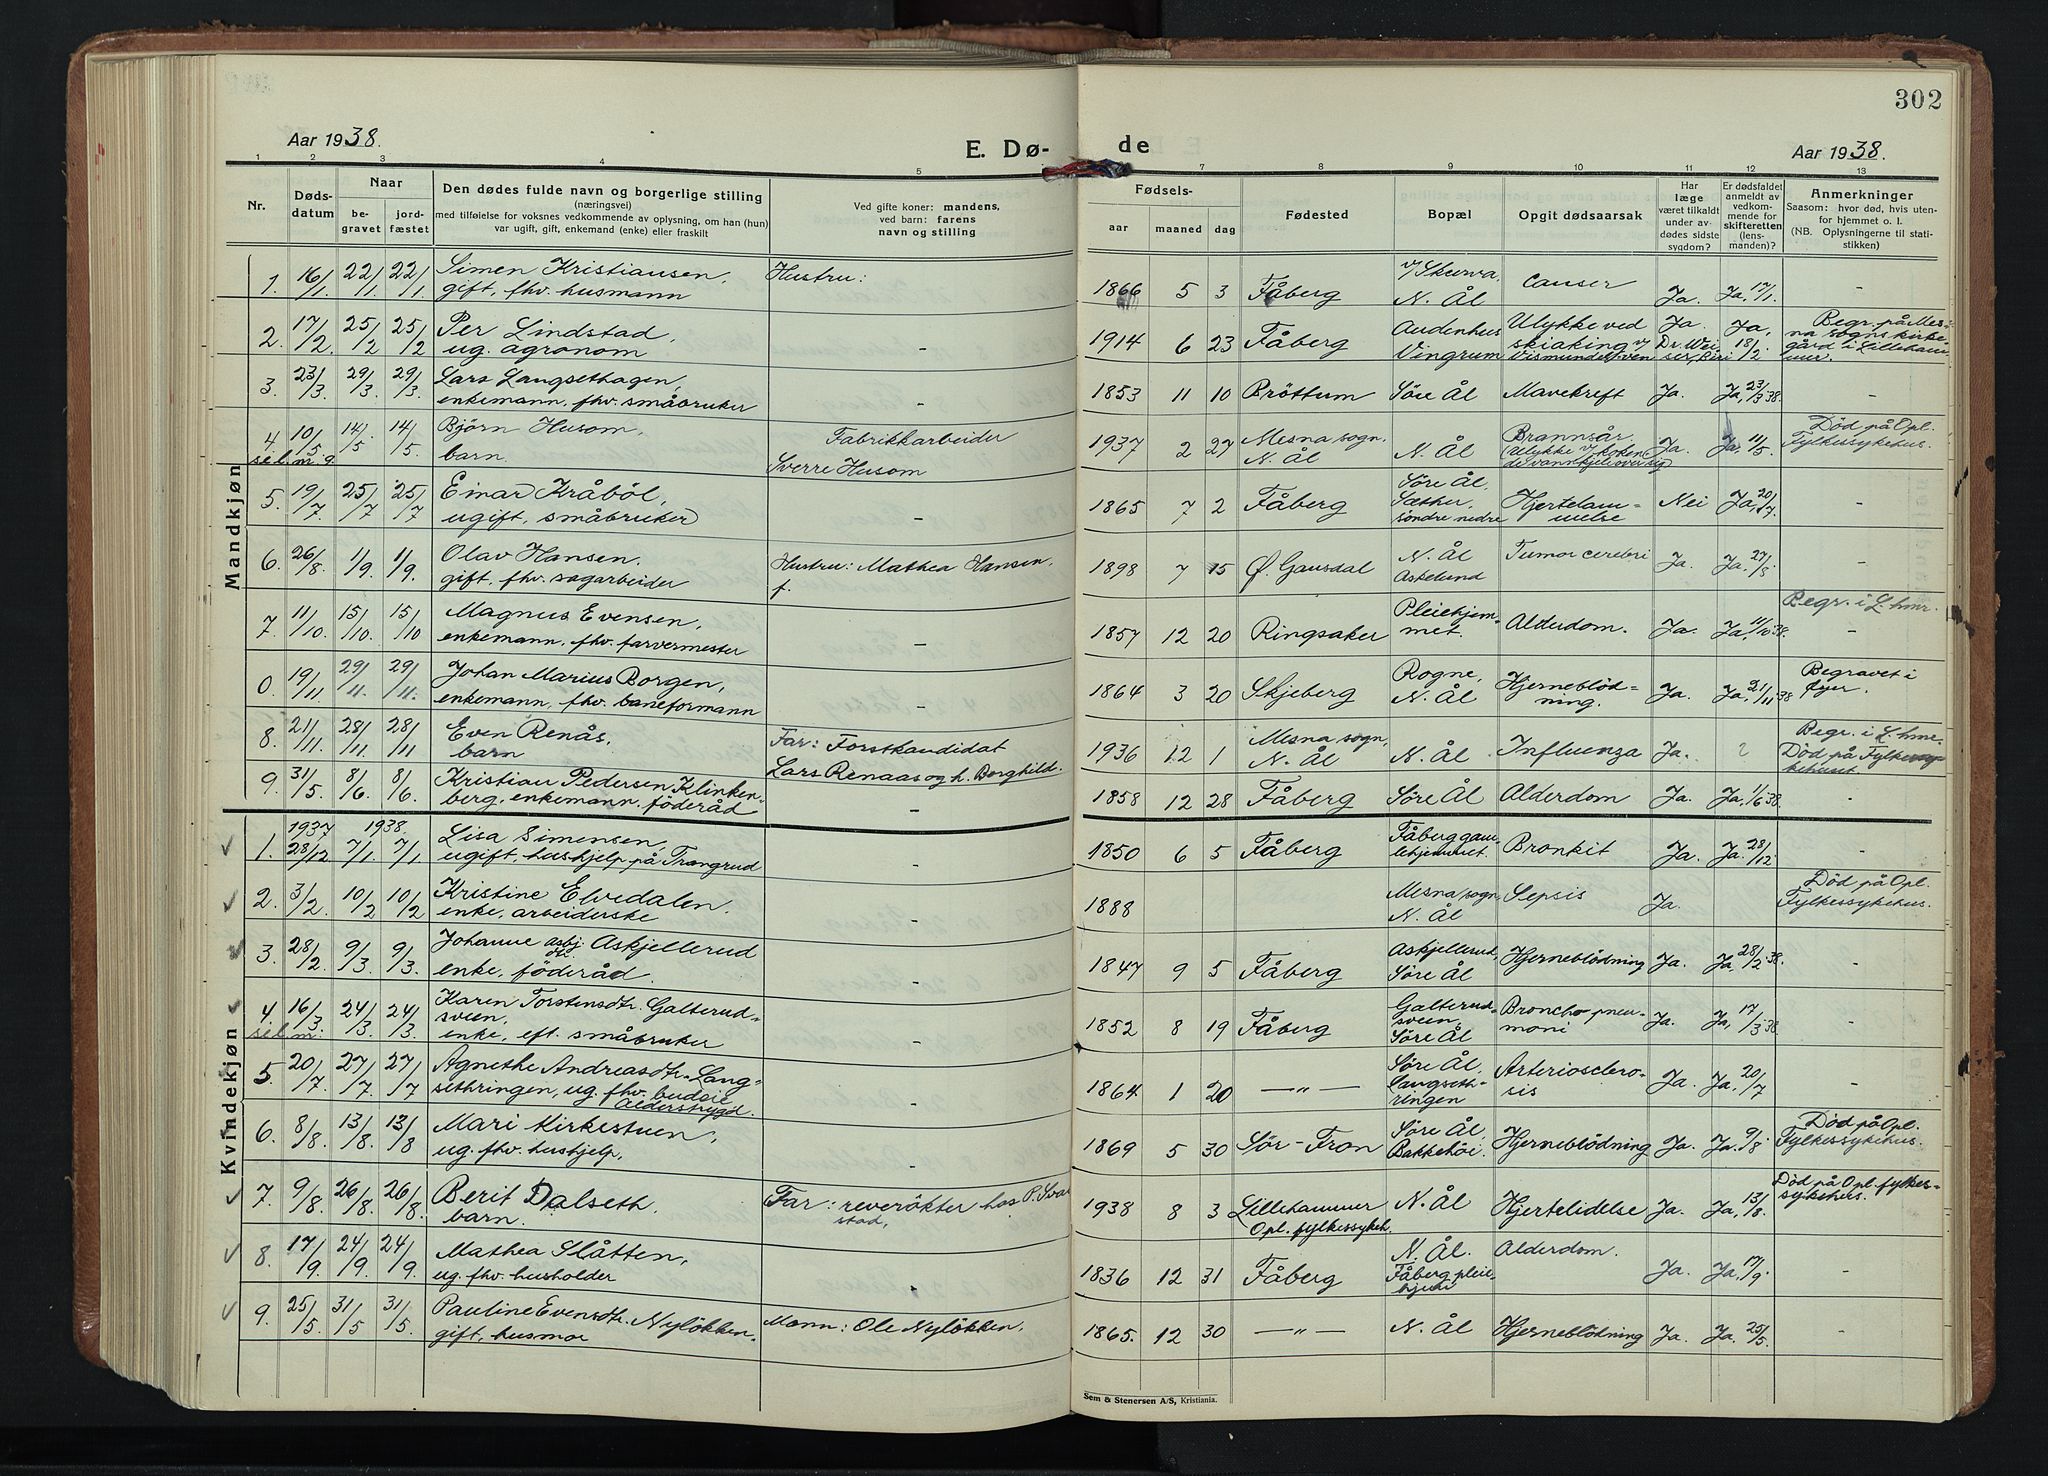 302
Aar 1938.
E. Dø-
de
Aar 1938.
1 2 3 4 5 7 8 9 10 11 12 13
Nr.
Døds-
datum
Naar
be-
gravet
jord-
fæstet
Den dødes fulde navn og borgerlige stilling
(næringsvei)
med tilføielse for voksnes vedkommende av oplysning, om han (hun)
var ugift, gift, enkemand (enke) eller fraskilt
Ved gifte koner: mandens,
ved barn: farens
navn og stilling
Fødsels-
aar maaned dag
Fødested
Bopæl
Opgit dødsaarsak
Har
læge
været tilkaldt
under av-
dødes sidste
sygdom?
Er dødsfaldet
anmeldt av
vedkom-
mende for
skifteretten
(lens-
manden)?
Anmerkninger
Saasom: hvor død, hvis uten-
for hjemmet o. l.
(NB. Oplysningerne til stati-
stikken)
Mandkjøn
1. 16/1 22/1 22/1 Simen Kristiansen, Hustru: 1866 5 3 Fåberg v/ Skurva, Canser Ja. Ja, 17/1. -
gift, fhv. husmann N. Ål
2. 17/2 25/2 25/2 Per Lindstad, - 1914 6 23 Fåberg Audenhus Ulykke ved Ja. Ja, Begr. på Mes-
ug. agronom Vingrum skiaking v/ Dr. Wei- 18/2. na sogns kirke-
Vismundelven ser, Biri gård i Lilleham-
mer.
3. 23/3 29/3 29/3 Lars Langsethagen, - 1853 11 10 Bröttum Söre Ål Mavekreft Ja. Ja, 23/3 38. -
enkemann, fhv. småbruker
4 10/5 14/5 14/5 Björn Husom, Fabrikkarbeider 1937 2 27 Mesna sogn, N. Ål Brannsår. Ja. Ja, 11/5. Död på Opl.
barn. Sverre Husom N. Ål (Ulykke v/ koken- Fylkessykehus.
de vannkjel over sig)
5. 19/7 25/7 25/7 Einar Kråböl, - 1865 7 2 Fåberg Söre Ål, Hjertelam- Nei Ja, 20/7. -
ugift, småbruker Sæther, melse
söndre nedre
6. 26/8 1/9 1/9. Olav Hansen. Hustru: Mathea Hansen, 1898 7 15 Ö. Gausdal N. Ål Tumor cerebri Ja Ja. 27/8 -
gift, fhv. sagarbeider f. Askelund
7. 11/10 15/10 15/10 Magnus Evensen, - 1857 12 20 Ringsaker Pleiehjem- Alderdom. Ja. Ja, 11/10 38. Begr. i L.hmr.
enkemann, fhv. farvermester met. -
0. 19/11 29/11 29/11. Johan Marius Borgen, - 1864 3 20 Skjeberg Rogne, Hjerneblöd- Ja. Ja, 21/11 38 Begravet i
enkemann, fhv. baneformann N. Ål ning. Öyer.
8. 21/11 28/11 28/11 Even Renås, Far: Forstkandidat 1936 12 1 Mesna sogn, N. Ål Influenza Ja. Begr. i L.hmr.
barn Lars Renaas og h. Borghild. N. Ål Död på Fylkessy-
kehuset.
9. 31/5. 8/6 8/6. Kristian Pedersen Klinken- - 1858 12 28 Fåberg Söre Ål Alderdom Ja. Ja, 1/6 38. -
berg, enkemann, föderåd
Kvindekjøn
1937 1938.
1. 28/12 7/1 7/1 Lisa Simensen, - 1850 6 5 Fåberg Fåberg gam- Bronkit Ja. Ja. 28/12. -
ugift, hushjelp på Trangrud lehjemmet.
2. 3/2 10/2 10/2 Kristine Elvedalen. - 1888 Mesna sogn, Sepsis Ja. Död på Opl.
enke, arbeiderske N. Ål Fylkessykehus.
3. 28/2 9/3 9/3. Johanne Asbj.dtr. Askjellerud - 1847 9 5 Fåberg Askjellerud, Hjerneblödning Ja. Ja, 28/2 38. -
enke, föderåd. Söre Ål
4 16/3 24/3 24/3 Karen Torstensdtr. Galterud- - 1852 8 19 Fåberg Galterud- Broncho pneu- Ja. Ja, 17/3 38. -
sveen, sveen, moni
enke, eft. småbruker Söre Ål
5. 20/7 27/7 27/7 Agnethe Andreasdtr. Lang- - 1864 1 20 —„— Söre Ål Arteriosclero- Ja. Ja, 20/7 -
sethringen, ug. fhv. budeie Langseth- sis
Alderstrygd. ringen
6. 8/8. 13/8 13/8 Mari Kirkestuen, - 1869 5 30 Sör-Fron Söre Ål Hjerneblödning Ja. Ja. 9/8 Död på Opl.
ug. fhv. hushjelp. Bakkehöi. Fylkessykehus.
7. 9/8. 26/8 26/8. Berit Dalseth, Far: reverökter hos P. Svar- 1938 8 3 Lillehammer N. Ål Hjertelidelse Ja. Ja, 13/8. Död på Opl. fylkes-
barn. stad, Opl. fylkessykeh. sykehus.
8. 17/9. 24/9 24/9. Mathea Slåtten, - 1836 12 31 Fåberg N. Ål. Alderdom. Ja. Ja, 17/9. -
ug. fhv. husholder Fåberg pleie-
hjem
9. 25/5 31/5 31/5. Pauline Evensdtr. Nylökken. Mann: Ole Nylökken. 1865. 12 30 —„— N. Ål Hjerneblödning Ja. Ja. 25/5. -
gift, husmor
Sem & Stenersen A/S, Kristiania.